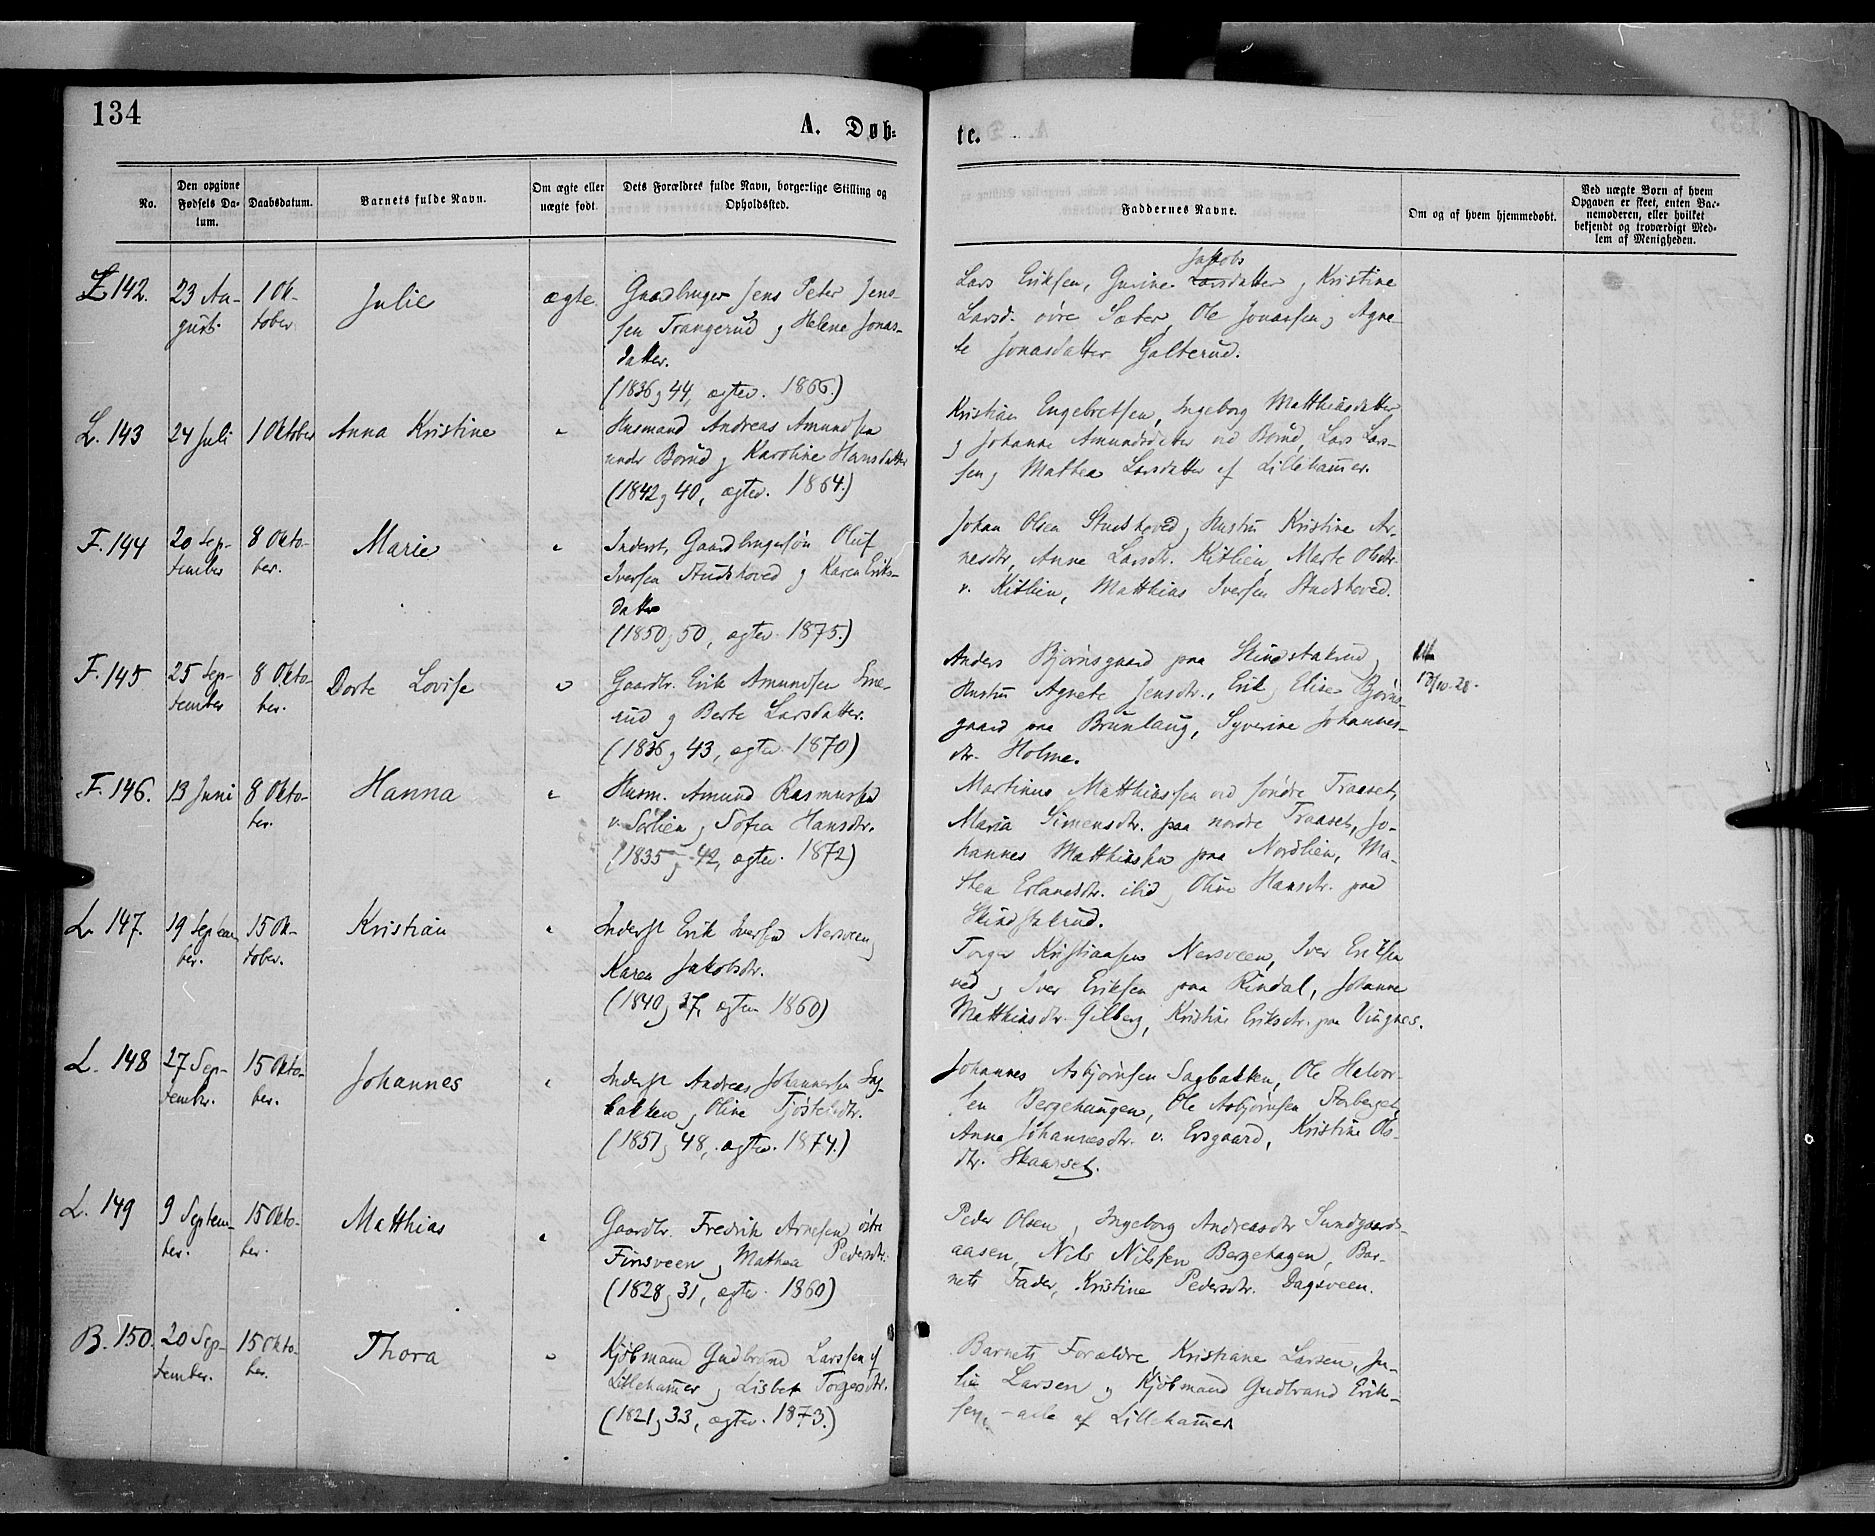 134
A. Døb-
te.
No.
Den opgivne Fødsels Da-tum.
Daabsdatum.
Barnets fulde Navn.
Om ægte eller uægte født.
Dets Forældres fulde Navn, borgerlige Stilling og Opholdssted.
Faddernes Navne.
Om og af hvem hjemmedøbt.
Ved uægte Børn af hvem Opgaven er skeet, enten Bar-nemoderen, eller hvilket bekjendt og troværdigt Med-lem af Menigheden.
142.
23 Au-
gust.
1 Ok-
tober
Julie
ægte
Gaardbruger Jens Peter Jens-
sen Trangerud og Helene Jonas-
datter.
(1836 og 44, ægtev. 1866.)
Jakobs
Lars Eriksen, Gurine Larsdatter og Kristine
Larsd. øvre Sæter, Ole Jonassen og Agne-
te Jonasdatter Galterud.
L. 143
24 Juli
1 Oktober
Anna Kristine
"
Husmand Andreas Amundsen
under Borud og Karoline Hansdatter
(1842 og 40, ægtev. 1864.)
Kristian Engebretsen, Ingeborg Matthiasdatter
og Johanne Amundsdatter ved Borud, Lars Lars-
sen og Mathea Larsdatter af Lillehamer.
F. 144
20 Sep-
tember
8 Okto-
ber.
Marie
"
Inderst, Gaardbrugersøn Oluf
Iversen Studshoved og Karen Eriks-
datter
(1850 og 50, ægtev. 1875.)
Johan Olsen Studshoved og Hustru Kristine Ar-
nesdtr, Anne Larsdtr. Kitlien, Marte Olsdtr.
v. Kitlien, Matthias Iversen Studshoved.
F. 145
25 Sep-
tember
8 Okto-
ber.
Dorte Lovise
"
Gaardbr. Erik Amundsen Sme-
rud og Berte Larsdatter.
(1836 og 43, ægtev. 1870)
Anders Bjørnsgaard paa Skindstakrud,
Hustru Agnete Jensdtr., Erik og Eline Bjørns-
gaard paa Brunlaug, Syverine Johannes-
dtr. Holme.
F. 146.
13 Juni
8 Okto-
ber.
Hanna
"
Husm. Amund Rasmussen
v. Sørlien og Sofia Hansdtr.
(1835 og 42, ægtev. 1872)
Martinus Matthiassen ved søndre Traaset,
Maria Simensdtr. paa nordre Traaset, Jo-
hannes Matthiassen paa Nordlien, Ma-
thea Erlandsdtr. ibid, Oline Hansdtr. paa
Skindstakrud.
L. 147.
19 Septem
ber.
15 Ok-
tober.
Kristian
"
Inderst Erik Iversen Nersveen og
Karen Jakobsdtr.
(1840 og 37, ægtev 1860)
Torger Kristiansen Nersveen, Iver Eriksen
ved og Iver Eriksen paa Rindal, Johanne
Matthiasdtr. Gilberg, Kristine Eriksdtr. paa Vingnes.
L. 148
27 Sep-
tember.
15 Okto-
ber.
Johannes
"
Inderst Andreas Johannessen Sag-
bakken og Oline Tjøstelsdtr.
(1851 og 48, ægtev. 1874.)
Johannes Asbjørnsen Sagbakken, Ole Halvor-
sen Bergehaugen, Ole Asbjørnsen Storberget,
Anna Johannesdtr. v. Ersgaard, Kristine Ols-
dtr. Skaarset.
L. 149
9 Septem-
ber.
15 Okto-
ber.
Matthias
"
Gaardbr. Fredrik Arnesen østre
Finsveen og Mathea Pedersdtr.
(1828 og 31, ægtev. 1860)
Peder Olsen og Ingeborg Andreasdtr Sundgaards-
aasen, Nils Nilssen Bergehagen, Bar-
nets Fader, Kristine Pedersdtr. Dagsveen.
B. 150.
20 Sep-
tember.
15 Okto-
ber.
Thora
"
Kjøbmand Gudbrand Larssen af
Lillehamer og Lisbet Torgersdtr.
(1821 og 33, ægtev. 1873.)
Barnets Forældre, Kristiane Larsen, Ju-
lie Larsen og Kjøbmand Gudbrand Erik-
sen, - alle af Lillehamer